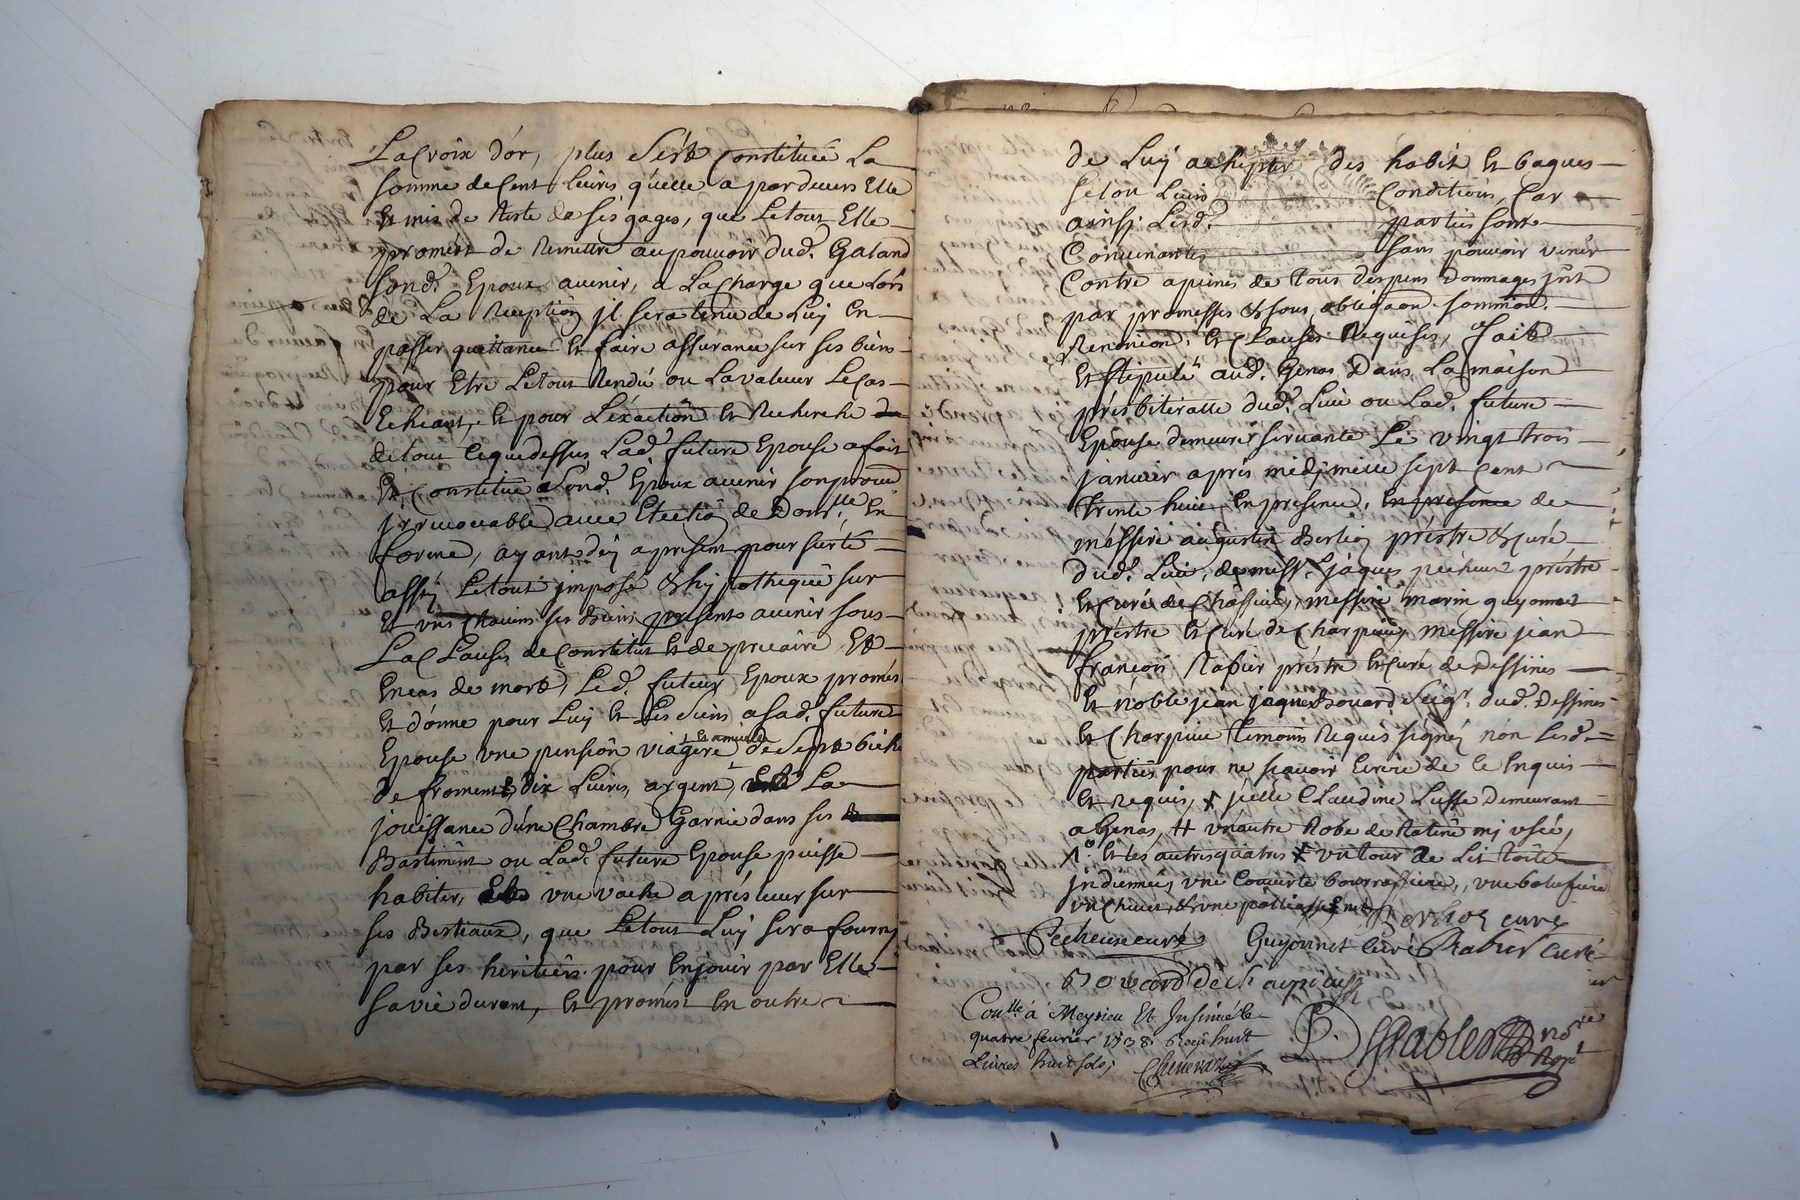 La Croix d'or, plus s'est Constituée La
somme de Cent livres qu'elle a par devers Elle
Et mis de Reste de ses gages, que Le tout Elle
promest de Remettre au pouvoir dud. Galand
sond. Epoux avenir, a La Charge que Lors
de La Reception il sera tenu de Luy En
passer quittance Et faire assurance sur ses biens
pour Etre Le tout Rendu ou La valeur Le Cas
Echeant, Et pour L'exaction Et Recherche de
de tout Ce que dessus Lad. future Epouse a fait
Et Constitué sond. Epoux avenir son procur
irrevocable avec Election de Domlle En
forme, ayant dej a present pour sureté
assi Le tout imposé & hipothequé sur
Et vns Chacuns ses Biens presents avenir sous
La Clauses de Constitut Et de precaire Et
En cas de mort, Led. futeur Epoux promes
Et donne pour Luy Et Les Siens a sad. future
Epouse vne pension viagere Et annuelle de sept biche
de froment & dix Livres, argent, La
jouissance d'une Chambre Garnie dans ses
Bastiment ou Lad. future Epouse puisse
habiter, vne vache a pres leur sur
ses Bestiaux, que Le tout Luy sera fourny
par ses heritiers pour En jouir par Elle
sa vie durant, Et promest En outre
de Luy achepter des habit Et bagues
selon Leurs Conditions, Car
ainsi Lesd. parties sont
Convenantes sans pouvoir venir
Contre a peines de tous despens Dommages jnt
par promesses & sous obligaon sommion.
Renonion. Et Clauses Requises, fait
Et stipulé aud. Genas Dans La maison
presbiteralle dud. Lieu ou Lad. future
Epouse demeure servante Le vingt trois
janvier apres midy mille sept Cent
trente huit, En presence, En presence de
messire augustin Berlioz prestre & curé
dud. Lieu, de mess. jaques pecheur prestre
Et Curé de Chassieu, messire marin guyonnet
prestre Et Curé de Charpieux messire jean
françois Rabier prestre Et Curé de Dessines
Et noble jean jaques Bouard seigr. dud. Dessines
Et Charpieu temoins Requis signés non Lesd.
parties pour ne sçavoir Ecrire de Ce Enquis
Et Requis, & jcelle Claudine Lusse Demeurant
a Genas, # vn autre Robe de Ratine mj usée,
Et les autres quatres vn tour de Lit toile
jndienne, vne Couverte bourrassiere, vne
vn Chevet, & vne Berlioz curé
Pecheur curé Guyonnet Curé Rabier Curé
Bouard de Charpieu
Conllé à Meyrieu Et Insinué le
quatre fevrier 1738. Reçu huit
Livres huit sols,